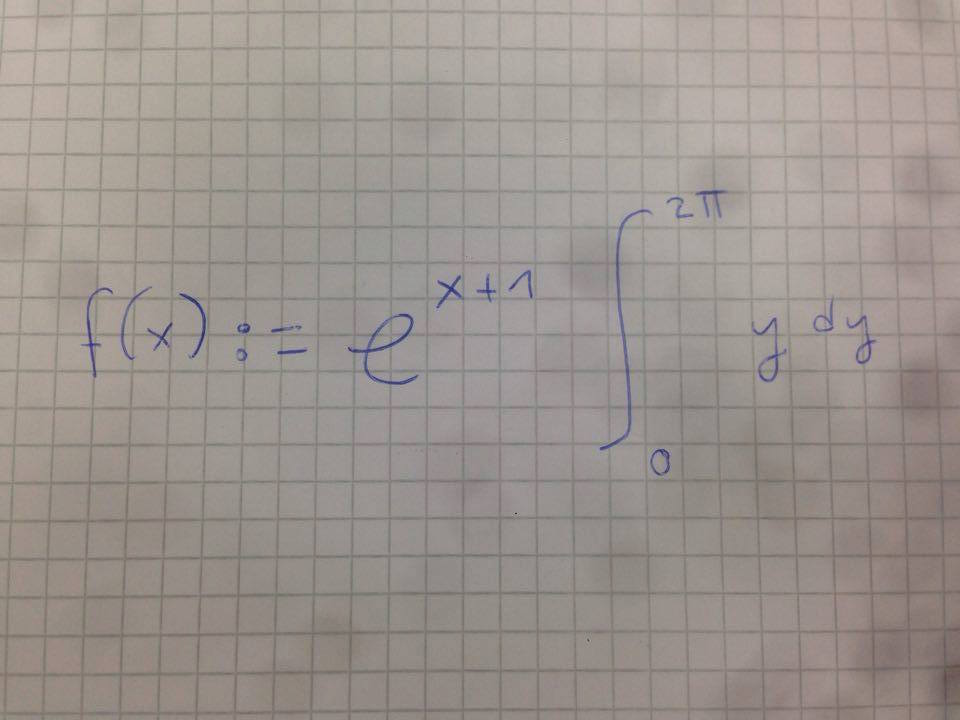 f(x) := e^{x+1} ∫_0^{2π} y dy